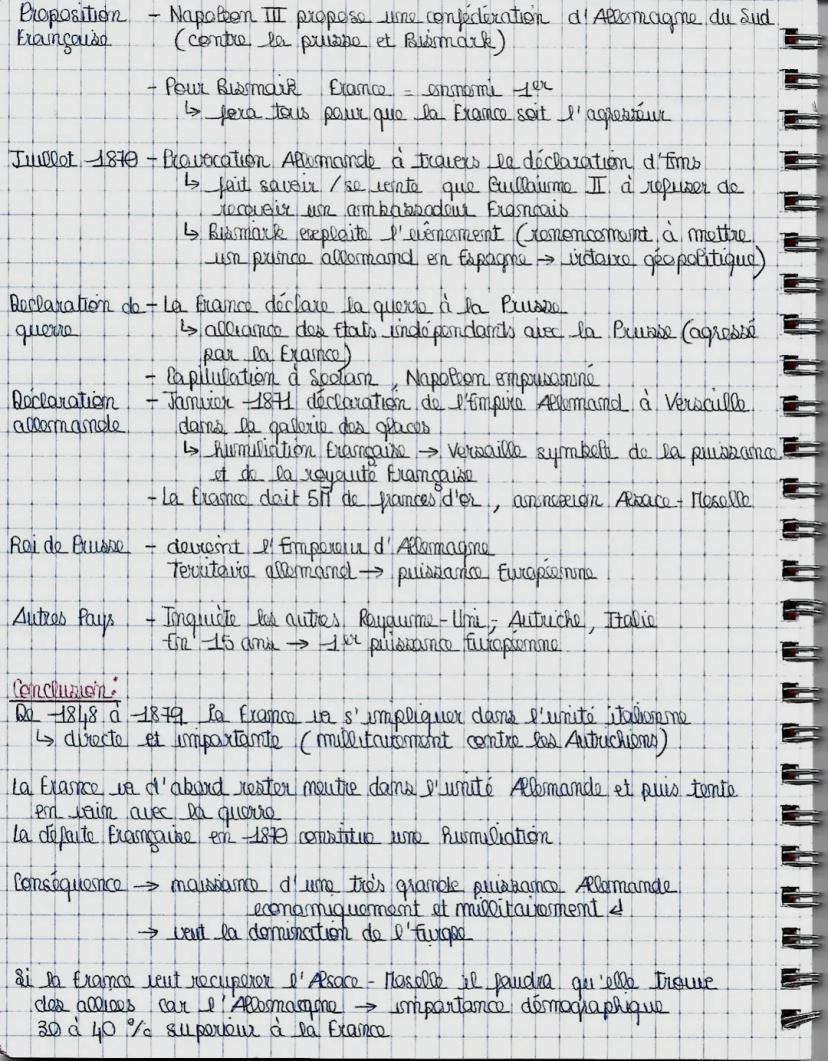 Proposition - Napoléon III propose une confédération d'Allemagne du Sud
Française (contre la prusse et Bismark)
- Pour Bismark France = ennemi 1er
↳ fera tous pour que la France soit l'agresseur
Juillet 1870 - Provocation Allemande à travers la déclaration d'Ems
↳ fait savoir / se vente que Guillaume II à refuser de
recevoir un ambassadeur Français
↳ Bismark exploite l'évènement (renoncement à mettre
un prince allemand en Espagne → victoire géopolitique)
Déclaration de - La France déclare la guerre à la Prusse
guerre ↳ alliance des Etats indépendants avec la Prusse (agressé
par la France)
- Capitulation à Sedan, Napoléon emprisonné
Déclaration - Janvier 1871 déclaration de l'Empire Allemand à Versaille
allemande dans la galerie des glaces
↳ humiliation Française → Versaille symbole de la puissance
et de la royauté Française
- La France doit 5M de francs d'or, annexion Alsace-Moselle
Roi de Prusse - devient l'Empereur d'Allemagne
Territoire allemand → puissance Européenne
Autres Pays - Inquiète les autres, Royaume-Uni, Autriche, Italie
En 15 ans → 1er puissance Européenne
Conclusion :
De 1848 à 1870 la France va s'impliquer dans l'unité italienne
↳ directe et importante (millitairement contre les Autrichiens)
La France va d'abord rester neutre dans l'unité Allemande et puis tente
en vain avec la guerre
La défaite Française en 1870 constitue une humiliation
Conséquence → naissance d'une très grande puissance Allemande
economiquement et millitairement
→ veut la domination de l'Europe
Si la France veut recuperer l'Alsace-Moselle il faudra qu'elle trouve
des alliées car l'Allemagne → importance démographique
30 à 40 % superieur à la France